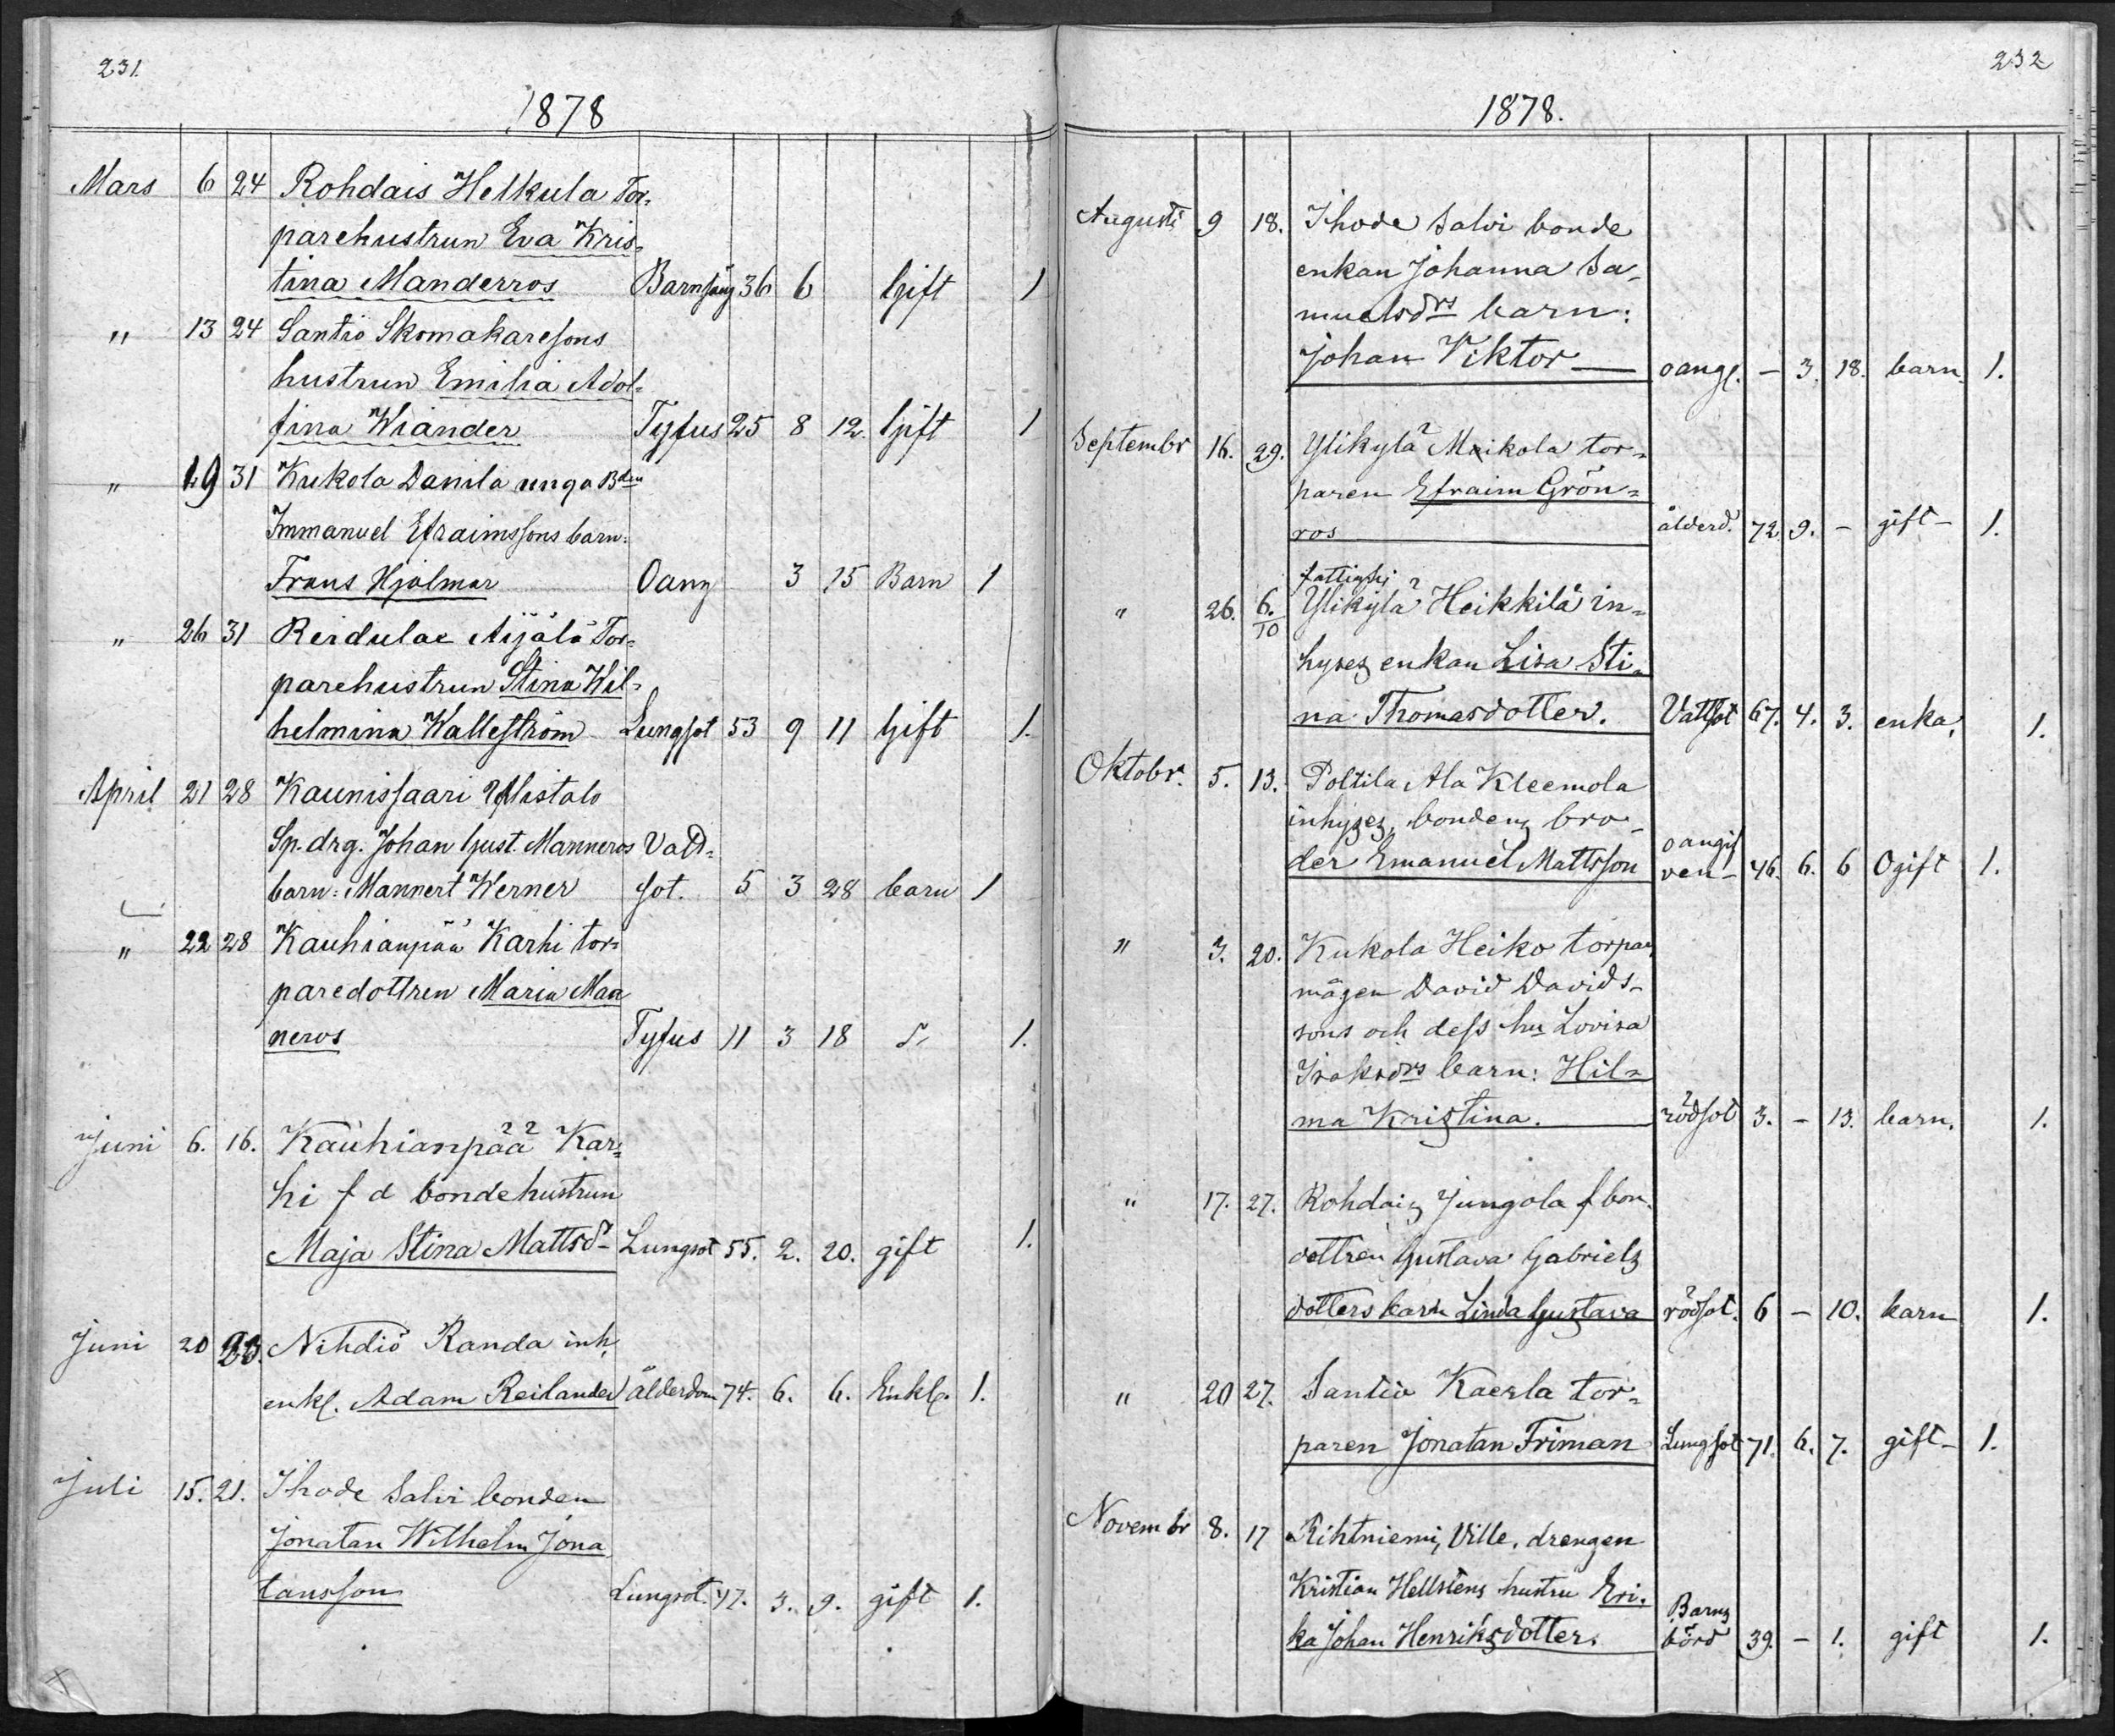 231.
1878
Mars 6 24 Rohdais Helkula Tor-
parehustrun Eva Kris-
tina Manderros Barnsäng 36 6 Gift 1
" 13 24 Santio Skomakaresons
hustrun Emilia Adol-
fina Wiander Tyfus 25 8 12. Gift 1
" 19 31 Kukola Danila unga Bden
Immanuel Efraimssons barn:
Frans Hjalmar Oang 3 15 Barn 1
" 26 31 Reidulae Aijälä Tor-
parehustrun Stina Wil-
helmina Walleström Lungsot 53 9 11 Gift 1.
April 21 28 Kaunissaari
Sp. drg. Johan Gust. Manneros Vatt-
barn: Mannert Werner sot. 5 3 28 barn 1
" 22 28 Kauhianpää Karhi tor-
paredottren Maria Man
neros Tyfus 11 3 18 1.
Juni 6. 16. Kauhianpää Kar-
hi f d bondehustrun
Maja Stina Mattsd- Lungsot 55. 2. 20. gift 1.
Juni 20 23. Nihdiö Randa inh,
enkl. Adam Reilander ålderdom 74. 6. 6. Enkl. 1.
Juli 15. 21. Ihode Salvi bonden
Jonatan Wilhelm Jona
tansson Lungsot. 47. 3. 9. gift 1.
232
1878.
Augusti 9 18. Ihode Salvi bonde
enkan Johanna Sa-
muelsdrs barn:
Johan Viktor oang. - 3. 18. barn. 1.
Septembr 16. 29. Ylikylä Mikola tor-
paren Efraim Grön-
ros ålderd. 72. 9. - gift - 1.
fattighj
" 26. 6./10 Ylikylä Heikkilä in-
hyses enkan Lisa Sti-
na Thomasdotter. Vattsot 67. 4. 3. enka. 1.
Oktobr. 5. 13. Poltila Ala Kleemola
inhyses, bondens bro-
der Emanuel Mattsson oangif ven - 46. 6. 6 Ogift 1.
" 3. 20. Kukola Heiko torpare
mågen David Davids-
sons och dess hu Lovisa
Isaksdrs barn: Hil-
ma Kristina. rödsot 3. - 13. barn. 1.
" 17. 27. Rohdais Jungola f bon.
dottren Gustava Gabriels
dotters barn Linda Gustava rödsot. 6 - 10. barn 1.
" 20 27. Santio Kaerla tor-
paren Jonatan Friman Lungsot 71. 6. 7. gift - 1.
Novembr 8. 17 Rihtniemi, Ville, drengen
Kristian Hellstens hustru Eri-
ka Johan Henriksdotter. Barns börd 39. - 1. gift 1.